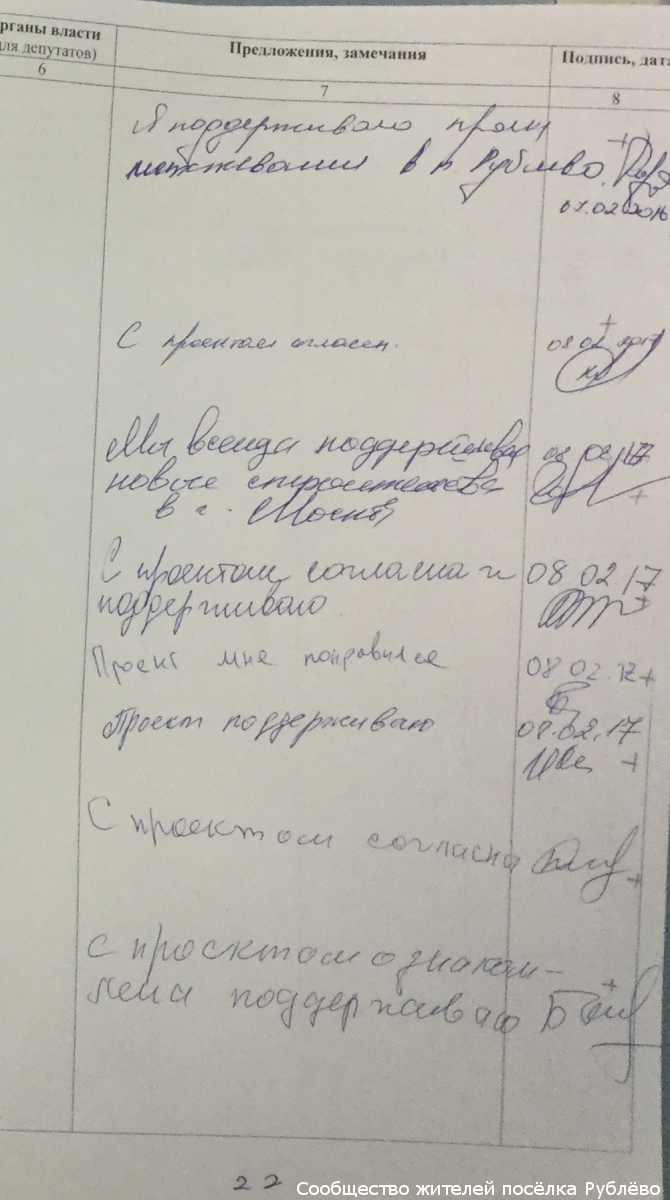 рганы власти
для депутатов)
Предложения, замечания
Подпись, дата
6
7
8
Я поддерживаю проект
межевания в п. Рублево.
07.02.2016
С проектом согласен.
08 02 2017
Мы всегда поддерживаем
08 02 17
новые строительства
в г. Москва
С проектом согласна и
08 02 17
поддерживаю
Проект мне понравился
08.02.17
Проект поддерживаю
08.02.17
С проектом согласна
С проектом ознаком-
лена поддерживаю
22
Сообщество жителей посёлка Рублёво